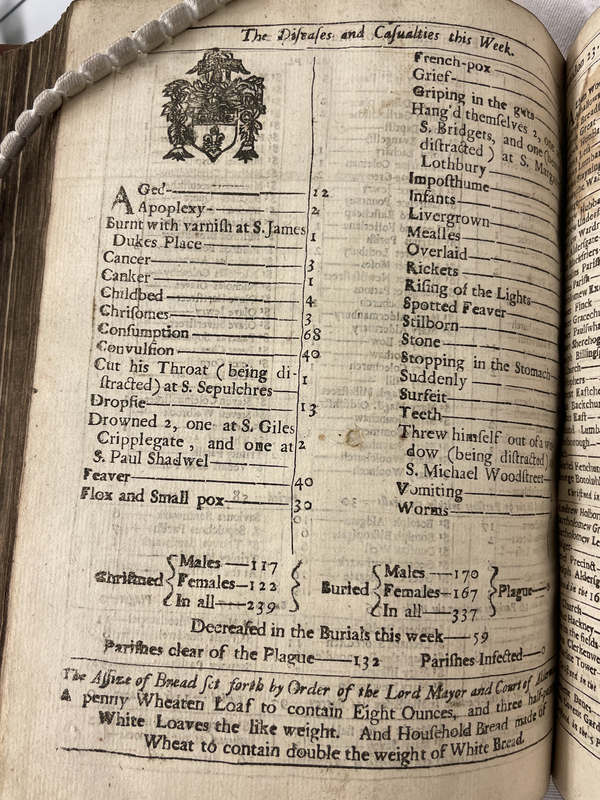 The Diſeaſes and Caſualties this Week.
AGed 12
Apoplexy 2
Burnt with varniſh at S. James
Dukes Place 1
Cancer 3
Canker 1
Childbed 4
Chriſomes 3
Conſumption 68
Convulſion 40
Cut his Throat (being di-
ſtracted) at S. Sepulchres 1
Dropſie 13
Drowned 2, one at S. Giles
Cripplegate, and one at 2
S. Paul Shadwel
Feaver 40
Flox and Small pox 30
French-pox
Grief
Griping in the guts
Hang'd themſelves 2, one
S. Bridgets, and one
diſtracted) at S.
Lothbury
Impoſthume
Infants
Livergrown
Meaſles
Overlaid
Rickets
Riſing of the Lights
Spotted Feaver
Stilborn
Stone
Stopping in the Stomach
Suddenly
Surfeit
Teeth
Threw himſelf out of a
dow (being diſtracted)
S. Michael Woodſtreet
Vomiting
Worms
Chriſtned { Males — 117
Females — 122
In all — 239 }
Buried { Males — 170
Females — 167
In all — 337 } Plague —
Decreaſed in the Burials this week — 59
Pariſhes clear of the Plague — 132 Pariſhes Infected — 0
The Aſſize of Bread ſet forth by Order of the Lord Mayor and Court of
A penny Wheaten Loaf to contain Eight Ounces, and three
White Loaves the like weight. And Houſhold Bread made of
Wheat to contain double the weight of White Bread.